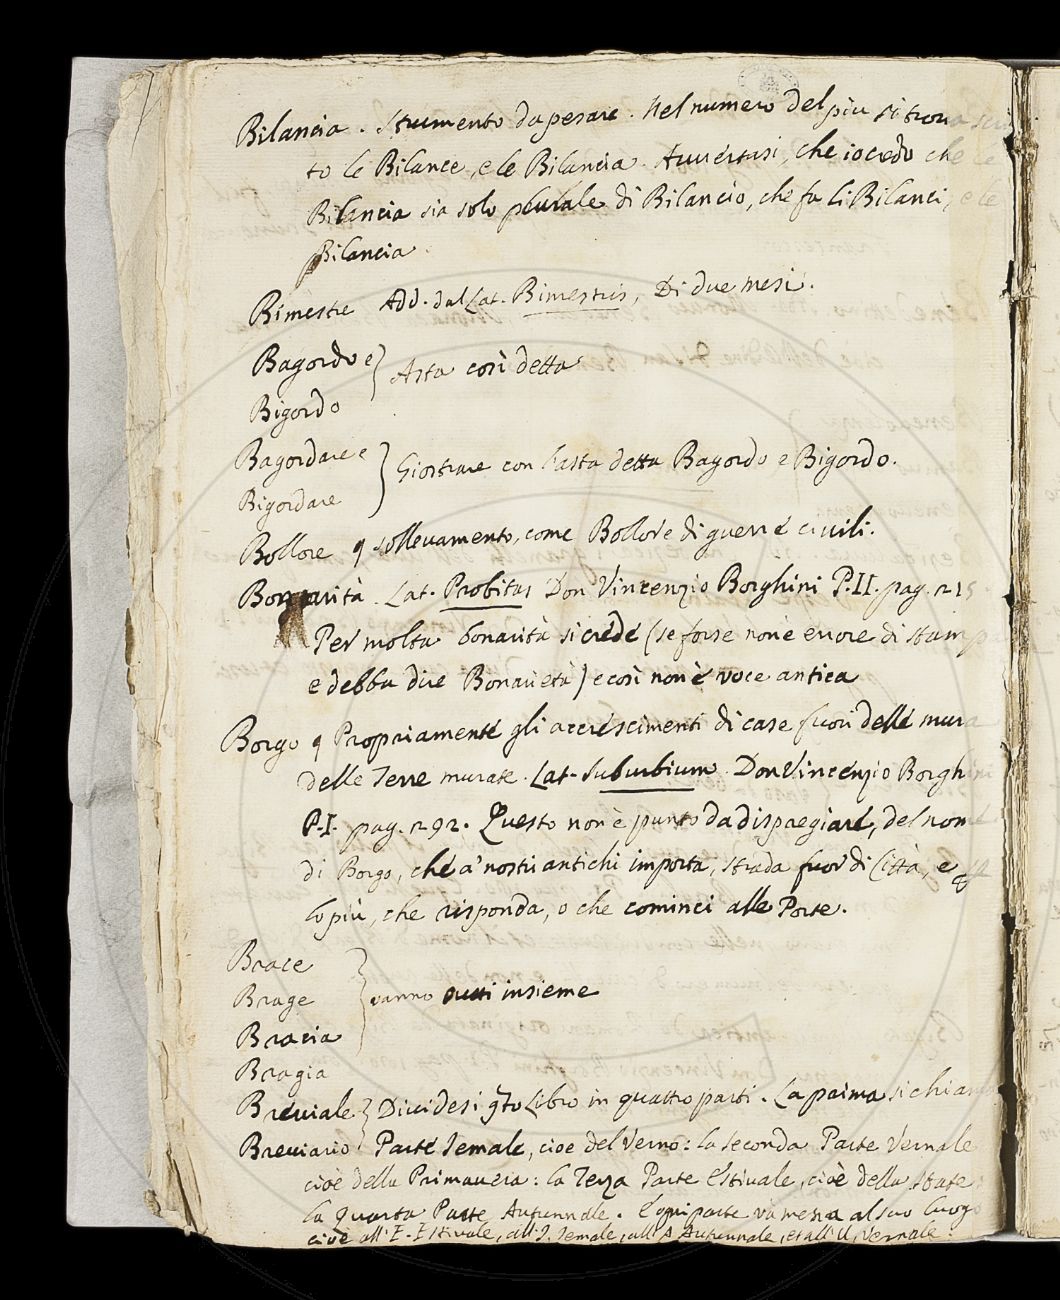 Bilancia. Strumento da pesare. Nel numero del piu si trova scrit
to le Bilance, e le Bilancia. Avvertasi, che io credo che le
Bilancia sia solo plurale di Bilancio, che fa li Bilanci, e le
Bilancia
Bimestre Add. dal Lat. Bimestris, Di due mesi.
Bagordo e
Bigordo } Asta così detta
Bagordare e
Bigordare } Giostrare con l'asta detta Bagordo e Bigordo.
Bollore q sollevamento, come Bollore di guerre civili.
Bonarità. Lat. Probitas Don Vincenzio Borghini P. II. pag. 215
Per molta bonarità si crede (se forse non è errore di stampa
e debba dire Bonarietà) e così non è voce antica
Borgo q Propriamente gli accrescimenti di case fuori delle mura
delle Terre murate. Lat. Suburbium. Don Vincenzio Borghini
P. I. pag. 292. Questo non è punto da dispregiare, del nome
di Borgo, che a' nostri antichi importa, strada fuor di Città, e
lo più, che risponda, o che cominci alle Porte.
Brace
Brage
Bracia
Bragia } vanno tutti insieme
Breviale }
Breviario } Dividesi qto Libro in quattro parti. La prima si chiama
Parte Jemale, cioè del Verno: la seconda Parte Vernale
cioè della Primavera: la Terza Parte Estivale, cioè della state:
la Quarta Parte Autunnale. E ogni parte và messa al suo luogo
cioè all' E. Estivale, all' J. Jemale, all' A Autunnale, et all' U, Vernale.